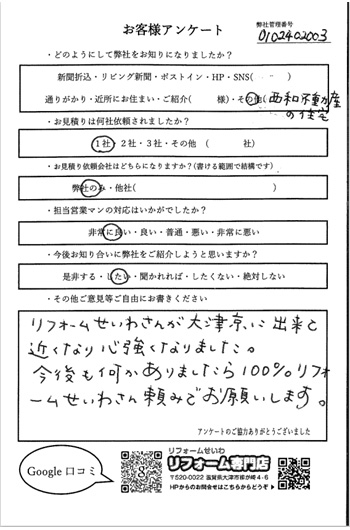 お客様アンケート
弊社管理番号
0102402003
・どのようにして弊社をお知りになりましたか？
新聞折込・リビング新聞・ポストイン・HP・SNS( )
通りがかり・近所にお住まい・ご紹介( 様)・その他( 西和不動産
の住宅
・お見積りは何社依頼されましたか？
1社・2社・3社・その他 ( 社)
・お見積り依頼会社はどちらになりますか？(書ける範囲で結構です)
弊社のみ・他社( )
・担当営業マンの対応はいかがでしたか？
非常に良い・良い・普通・悪い・非常に悪い
・今後お知り合いに弊社をご紹介しようと思いますか？
是非する・したい・聞かれれば・したくない・絶対しない
・その他ご意見等ご自由にお書きください
リフォームせいわさんが大津京に出来て
近くなり心強くなりました。
今後も何かありましたら100%リフォ
ームせいわさん頼みでお願いします。
アンケートのご協力ありがとうございました
Google口コミ
リフォームせいわ
リフォーム専門店
〒520-0022 滋賀県大津市柳が崎4-6
HPからのお問合せはこちらからどうぞ